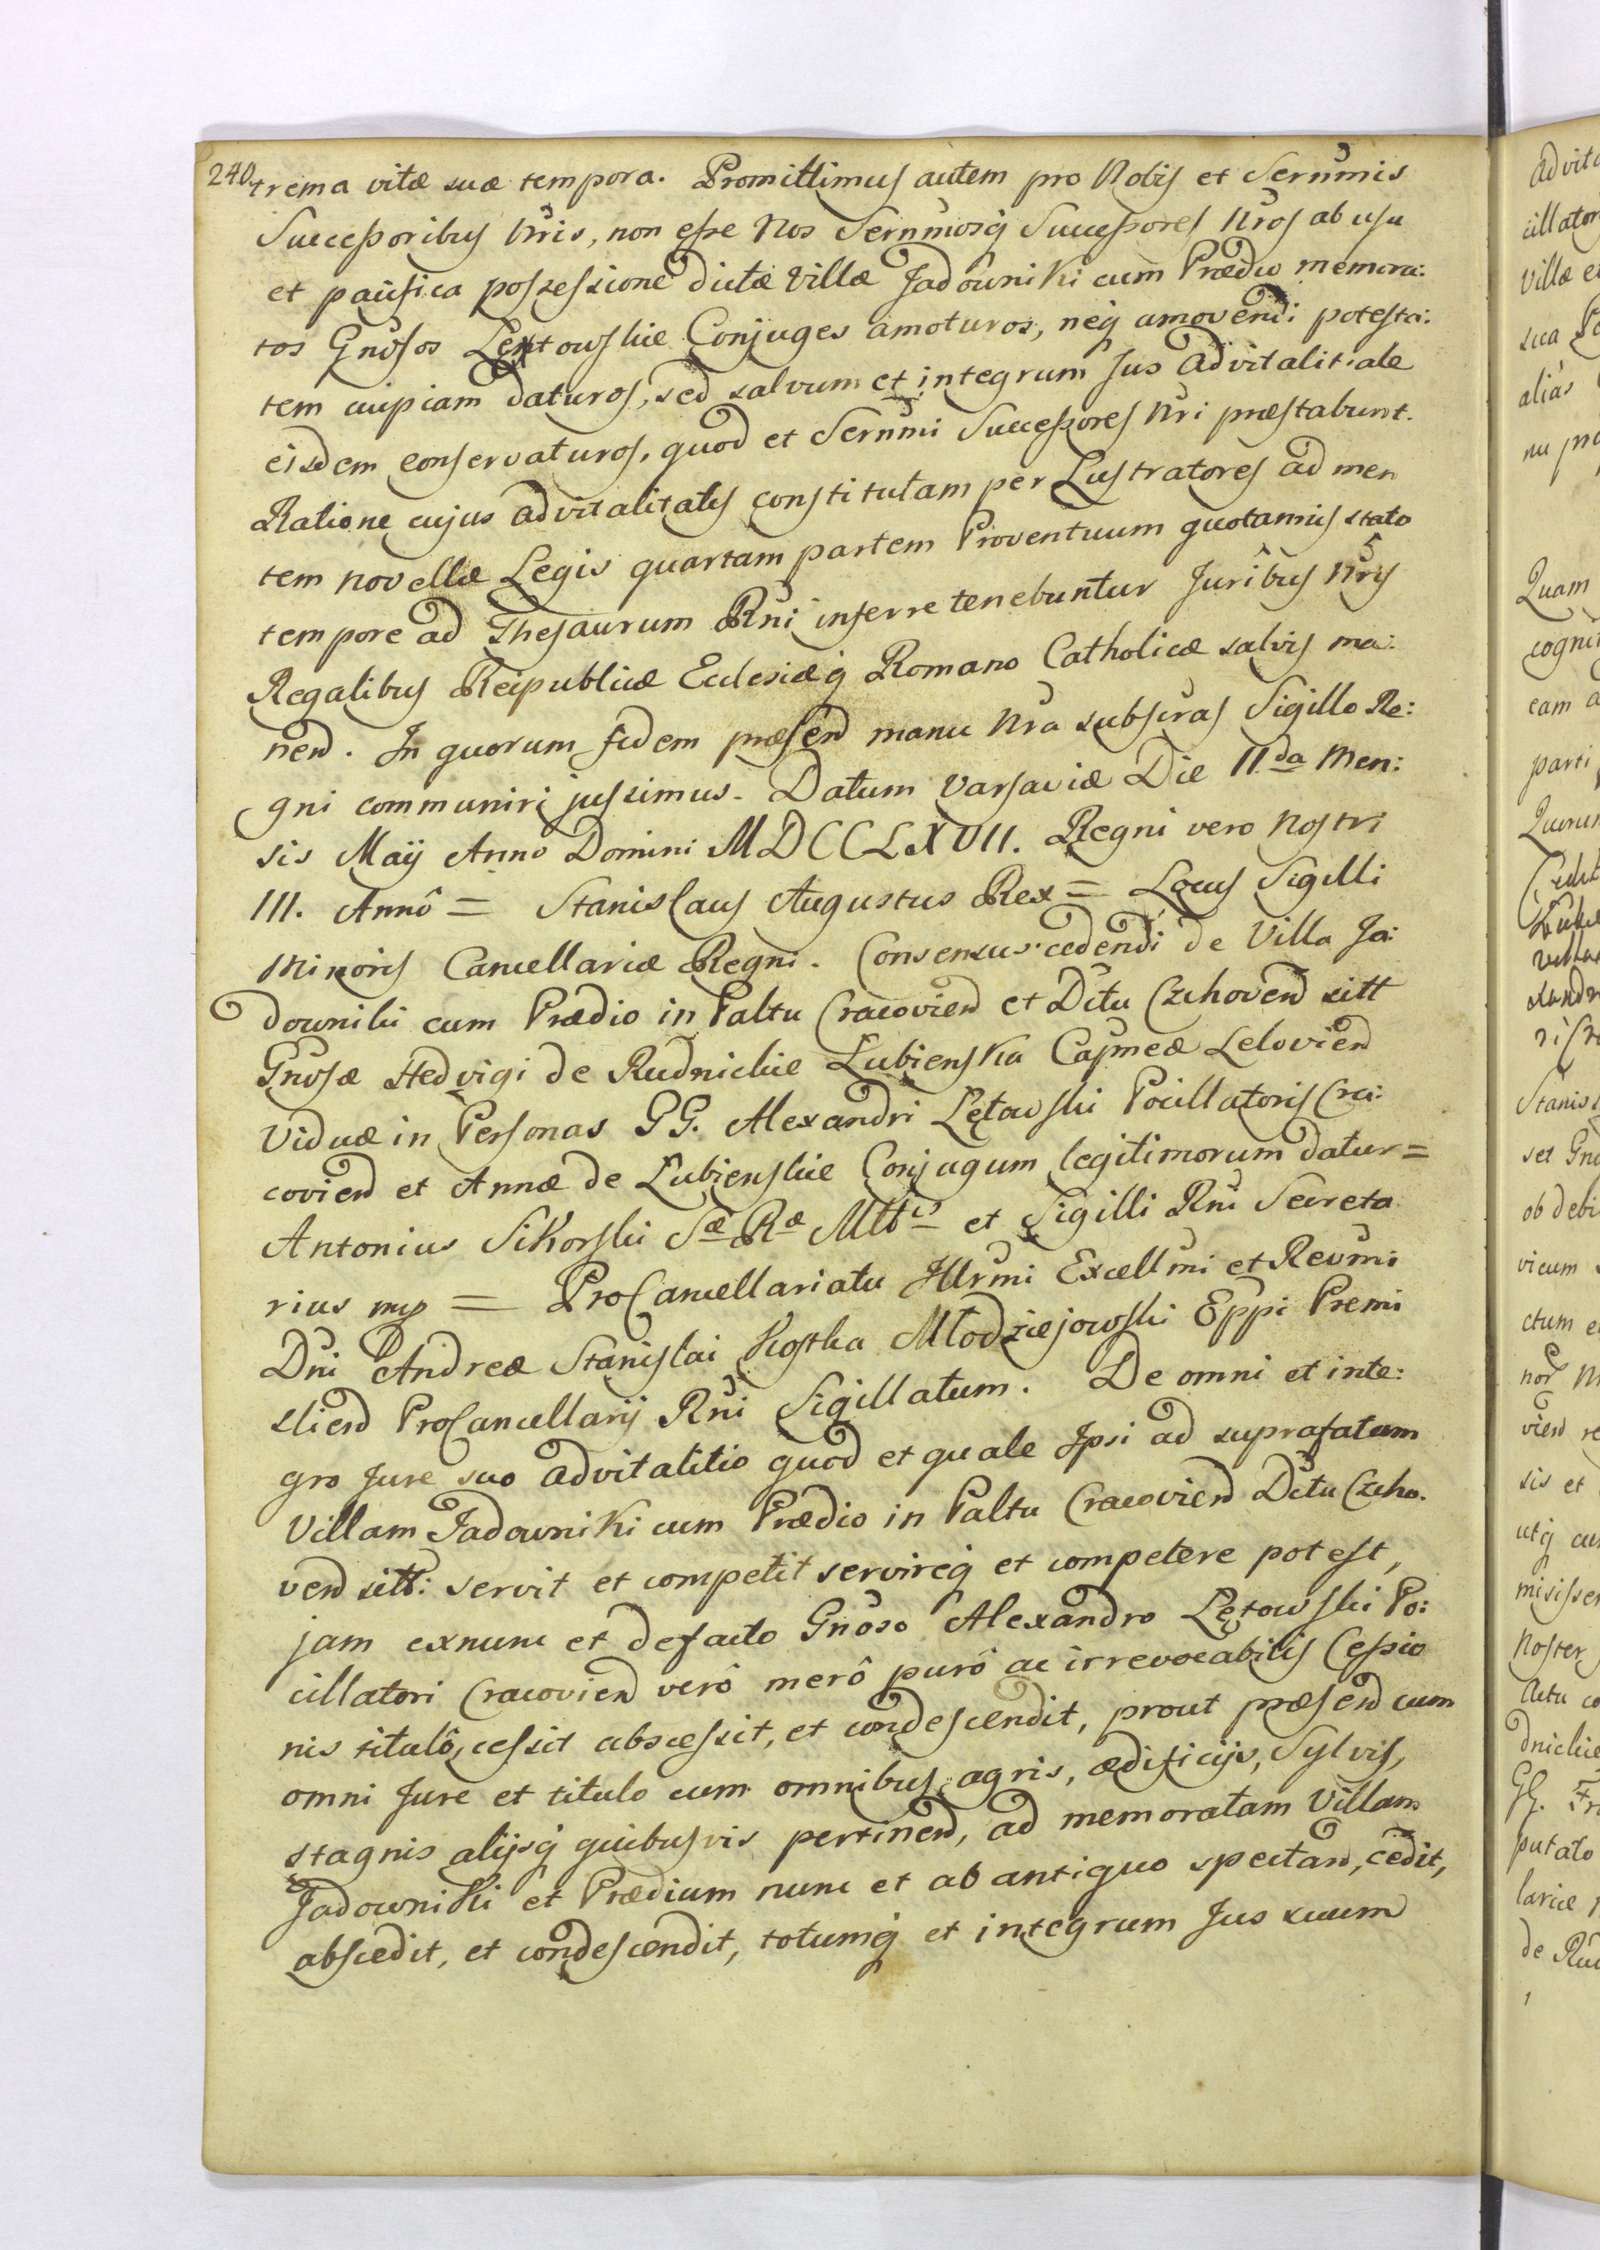 240
trema vitæ suæ tempora. Promittimus autem pro Nobis et Sernmis
Successoribus Nris, non esse Nos Sernmosq Successores Nros ab usu
et pacifica possessione dictæ Villæ Jadowniki cum Prædio memora:
tos Gnosos Lentowskie Conjuges amoturos, neq amovendi potesta:
tem cuipiam daturos, sed salvum et integrum Jus Advitalitiale
eisdem conservaturos, quod et Sernmi Successores Nri præstabunt.
Ratione cujus advitalitatis constitutam per Lustratores ad men
tem novellæ Legis quartam partem Proventuum quotannis stato
tempore ad Thesaurum Rni inferre tenebuntur Juribus Nris
Regalibus Reipublicæ Eclesiæq Romano Catholicæ salvis ma:
nen. In quorum fidem præsen manu Nra subscras Sigillo Re:
gni communiri jussimus. Datum Varsaviæ Die II da Men:
sis Maij Anno Domini MDCCLXVII. Regni vero Nostri
III. Annô = Stanislaus Augustus Rex = Locus Sigilli
Minoris Cancellariæ Regni. Consensus cedendi de Villa Ja:
downiki cum Prædio in Paltu Cracovien et Dctu Czchoven sitt
Gnosæ Hedvigi de Rudnickie Lubienska Capneæ Lelovien
Viduæ in Personas GG. Alexandri Lętowski Pocillatoris Cra:
covien et Annæ de Lubienskie Conjugum legitimorum datur =
Antonius Sikorski Sæ Ræ Mttis et Sigilli Rni Secreta
rius mp = ProCancellariatu Illrmi Excellmi et Revmi
Dni Andreæ Stanislai Kostka Młodziejowski Eppi Premi
slien ProCancellarij Rni Sigillatum. De omni et inte:
gro Jure suo advitalitio quod et quale Ipsi ad suprafatam
Villam Jadowniki cum Prædio in Paltu Cracovien Dctu Czcho.
ven sitt: servit et competit servireq et competere potest,
jam exnunc et defacto Gnoso Alexandro Lętowski Po:
cillatori Cracovien verô merô purô ac irrevocabilis Cessio
nis titulô, cessit abscessit, et condescendit, prout præsen cum
omni Jure et titulo cum omnibus agris, ædificijs, Sylvis,
stagnis alijsq quibusvis pertinen, ad memoratam Villam
Jadowniki et Prædium nunc et ab antiquo spectan, cedit,
abscedit, et condescendit, totumq et integrum Jus suum